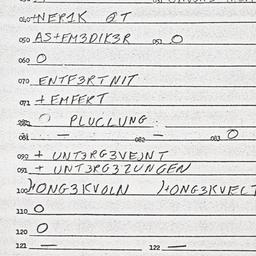 040 +NEP1K QT
050 AS+EM3DIK3R 051 O
060 O
070 ENTF3RTNIT
071 +EMFERT
O PLUCLUNG
081 — 082 — 083 O
090 + UNT3RG3VEJNT
091 + UNT3RG3ZUNGEN
100 HONG3KVOLN HONG3KVELT
110 O
120 O
121 — 122 —